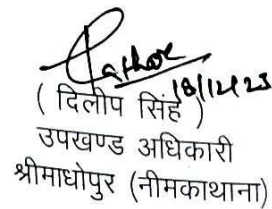 18/12/23
( दिलीप सिंह )
उपखण्ड अधिकारी
श्रीमाधोपुर (नीमकाथाना)